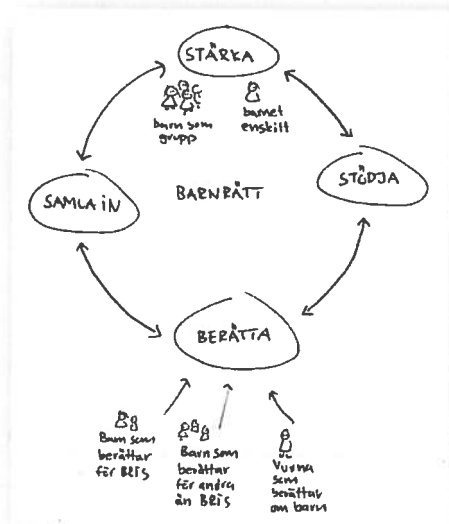 STÄRKA
barn som
grupp
barnet
enskilt
SAMLA IN
BARNRÄTT
STÖDJA
BERÄTTA
Barn som
berättar
för BRIS
Barn som
berättar
för andra
än BRIS
Vuxna
som
berättar
om barn